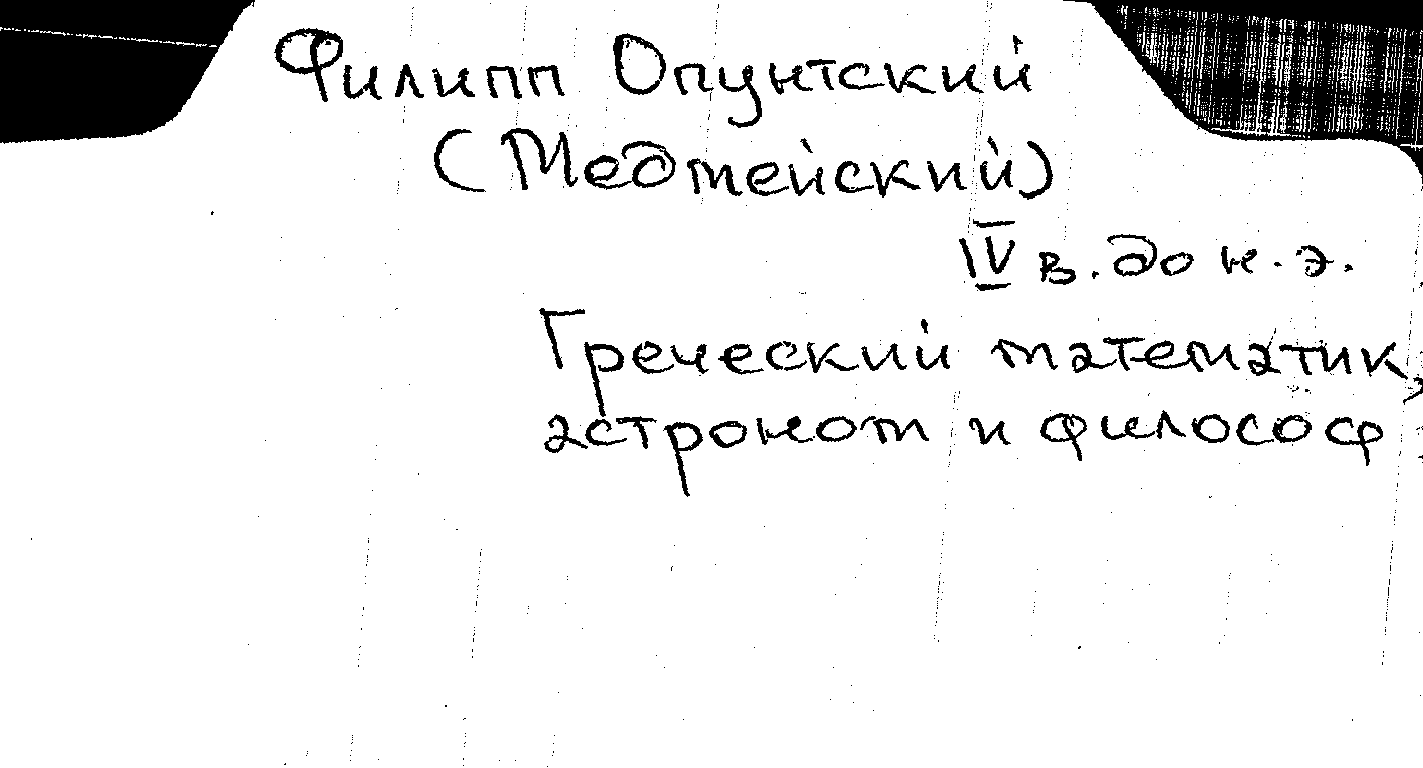 Филипп Опунтский
(Медмейский)
IV в. до н.э.
Греческий математик,
астроном и философ